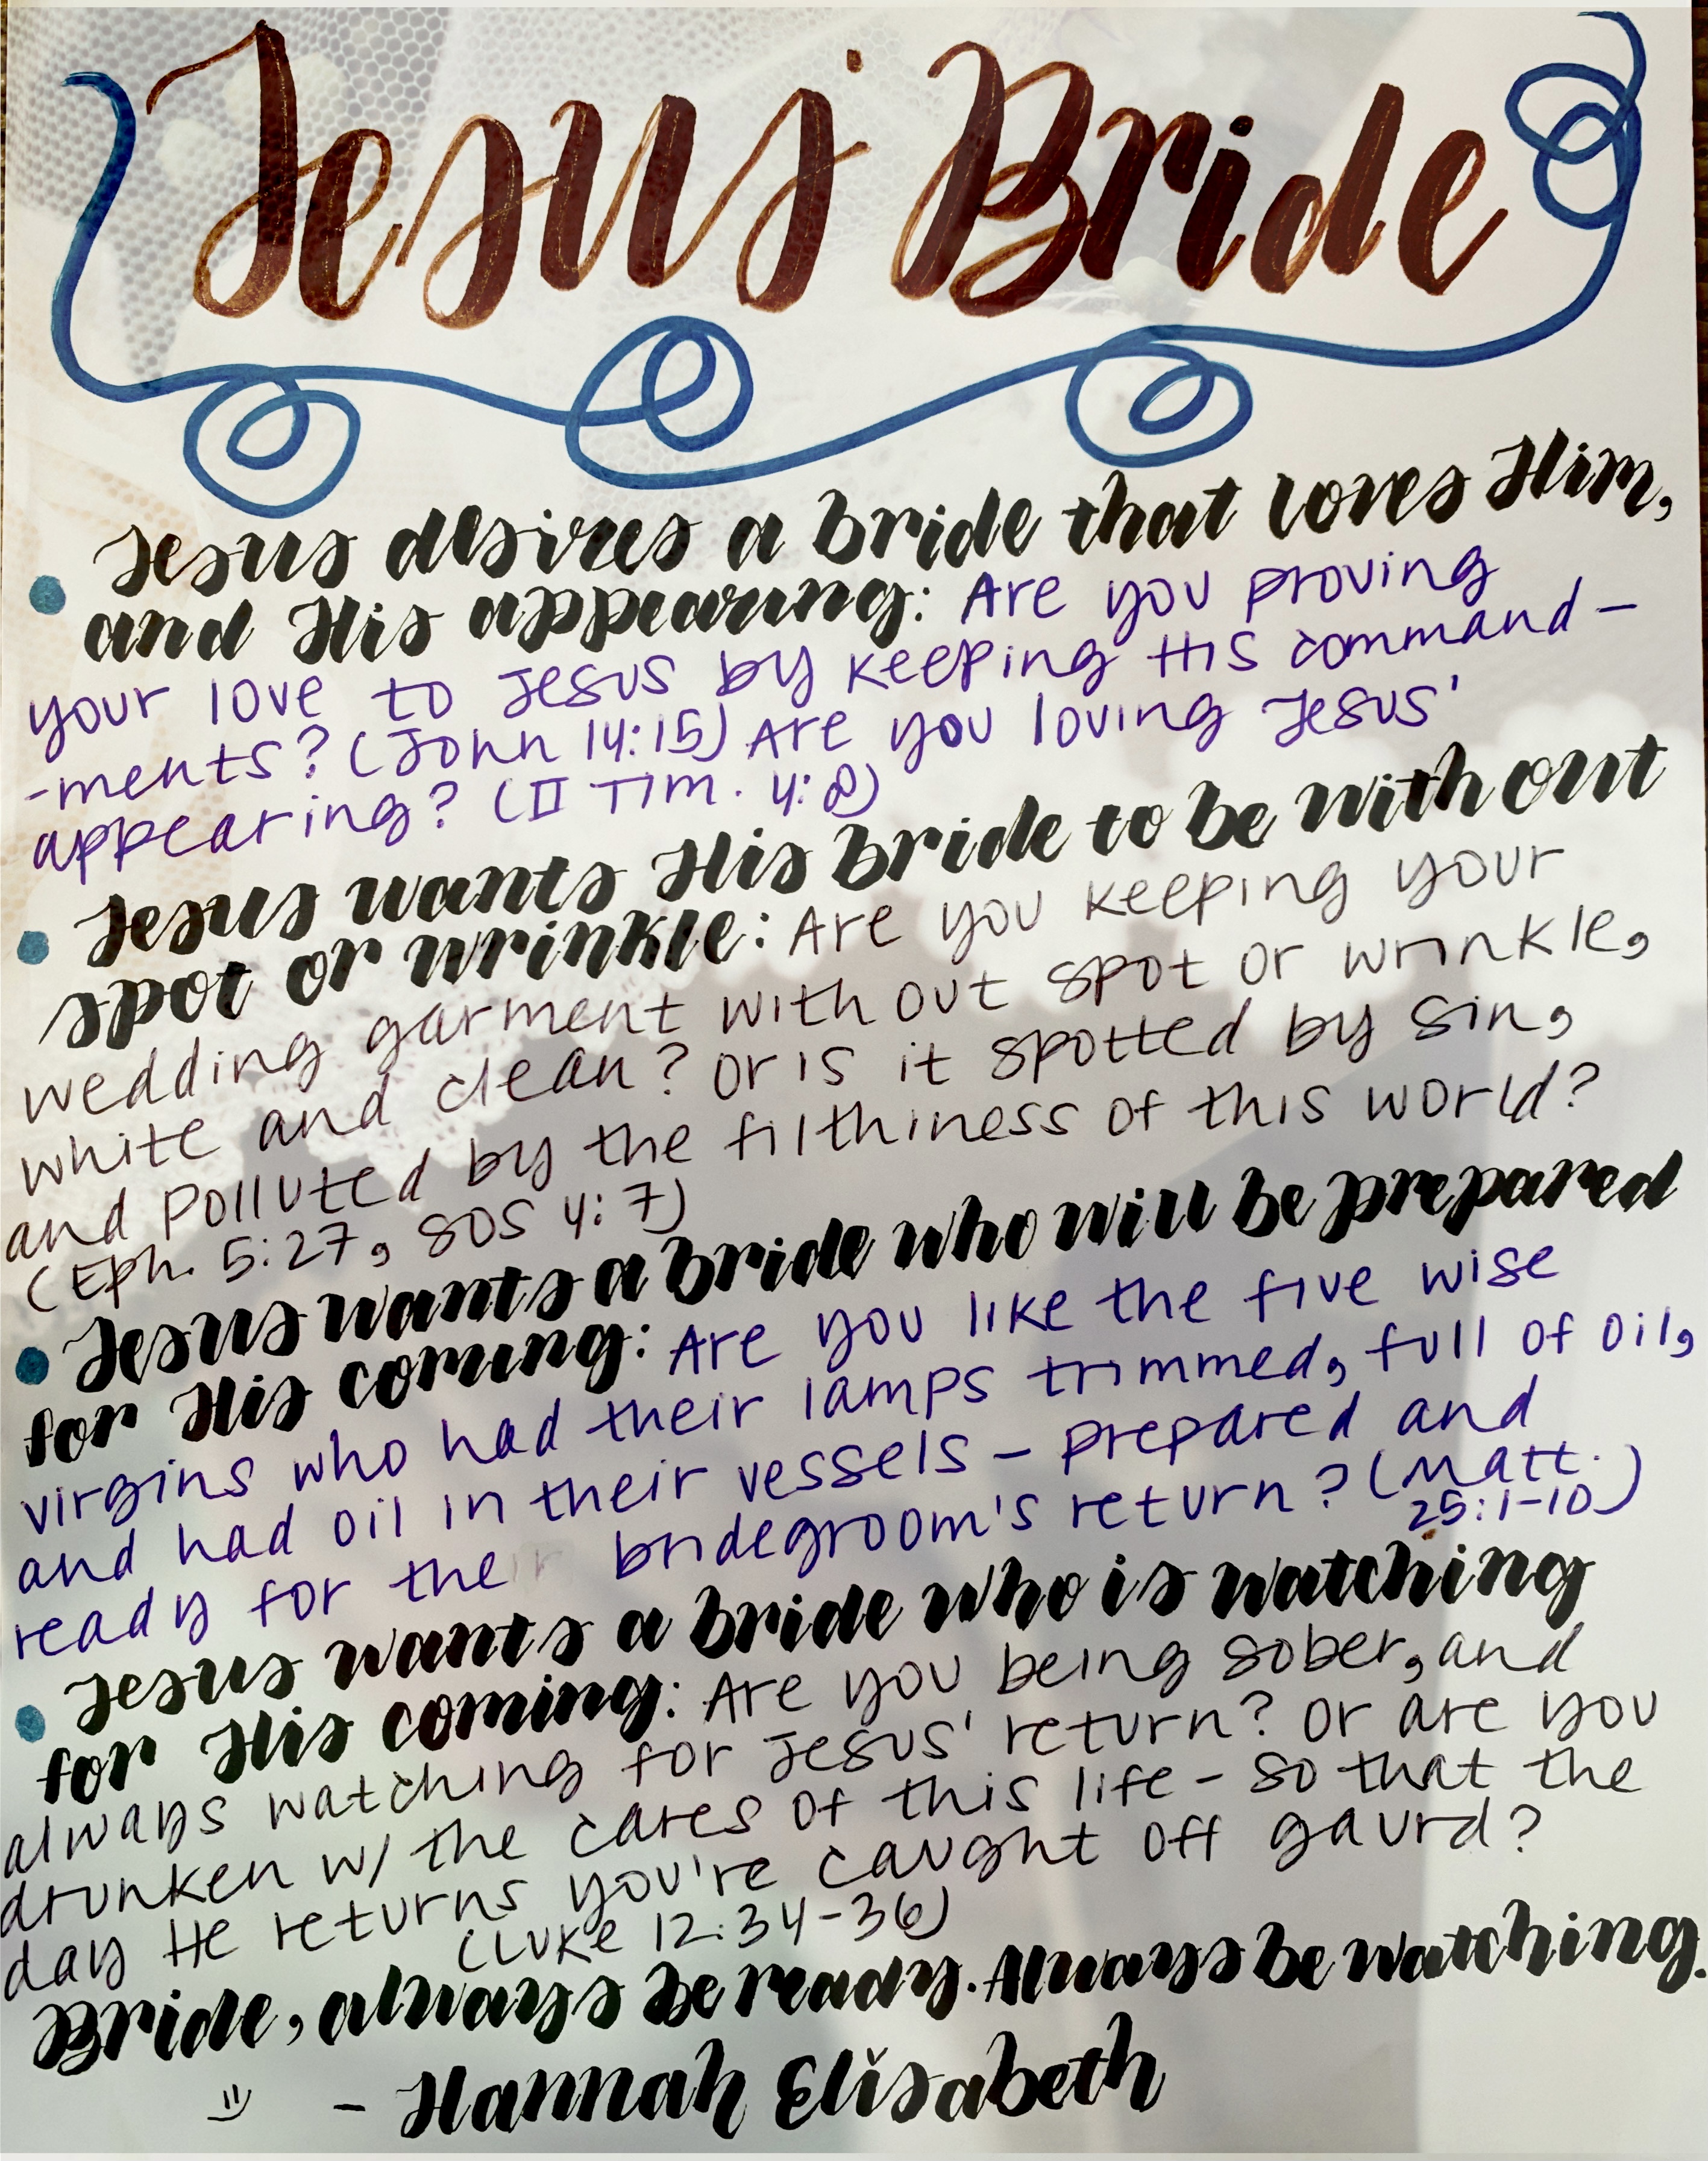 Jesus' Bride
• Jesus desires a bride that loves Him,
and His appearing: Are you proving
your love to Jesus by keeping His command-
-ments? (John 14:15) Are you loving Jesus'
appearing? (II Tim. 4:8)
• Jesus wants His bride to be without
spot or wrinkle: Are you keeping your
wedding garment without spot or wrinkle,
white and clean? Or is it spotted by sin,
and polluted by the filthiness of this world?
(Eph. 5:27, SOS 4:7)
• Jesus wants a bride who will be prepared
for His coming: Are you like the five wise
virgins who had their lamps trimmed, full of oil,
and had oil in their vessels - prepared and
ready for their bridegroom's return? (Matt.
25:1-10)
• Jesus wants a bride who is watching
for His coming: Are you being sober, and
always watching for Jesus' return? Or are you
drunken w/ the cares of this life - so that the
day He returns you're caught off gaurd?
(Luke 12:34-36)
Bride, always be ready. Always be watching.
- Hannah Elisabeth